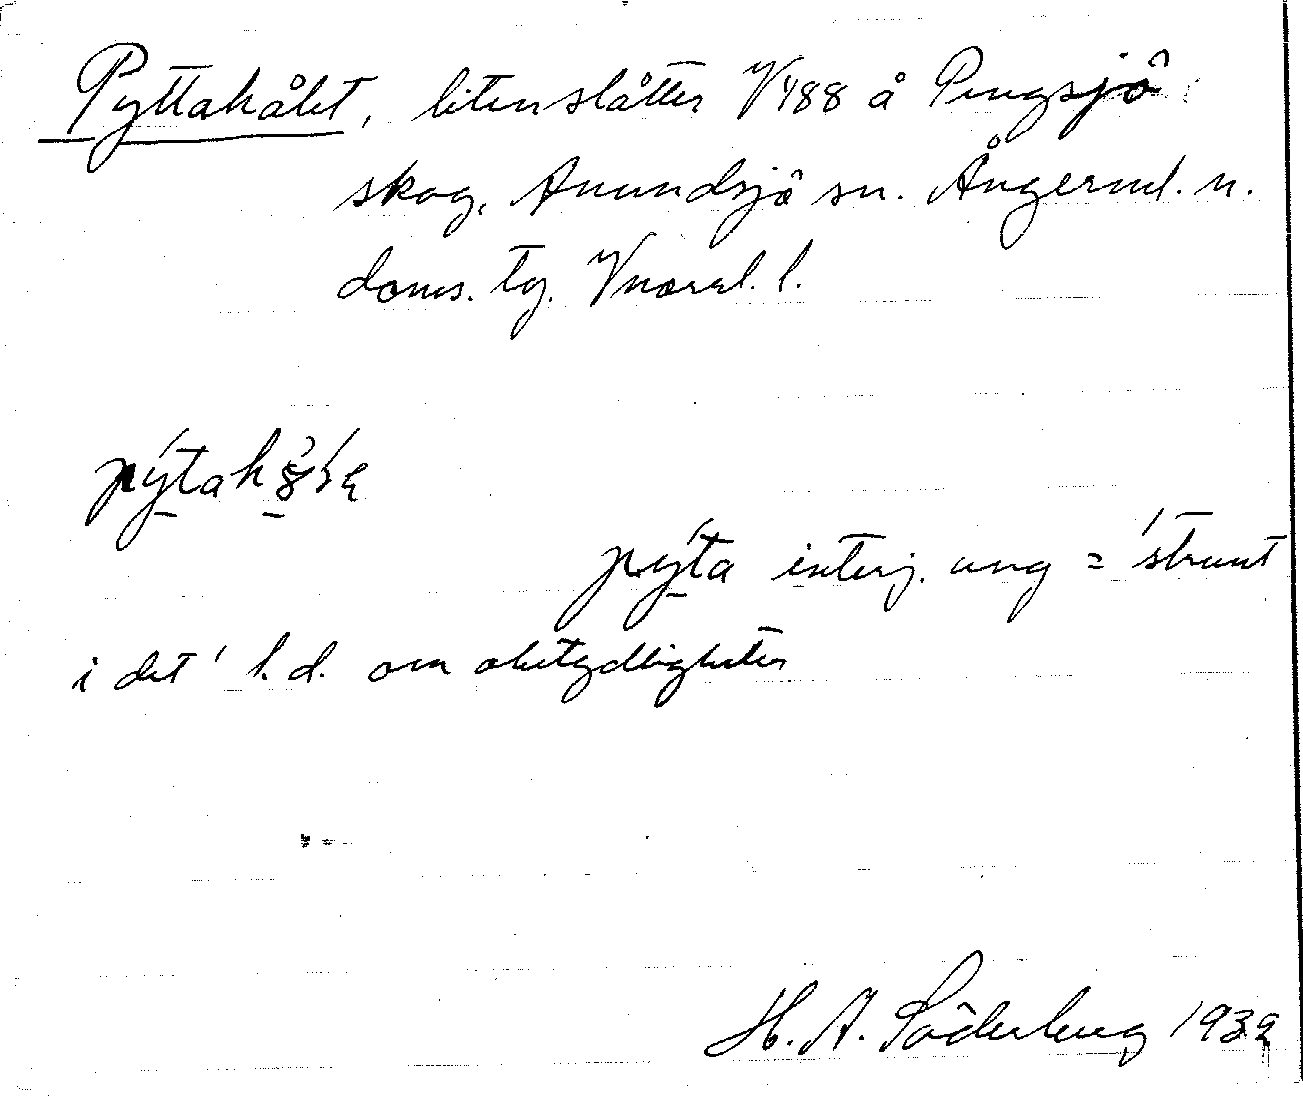 Pyttahålet, liten slåtter V 488 å Pengsjö
skog, Anundsjö sn. Ångerml. n.
doms. tg. Vnorrl. l.
pýta
pýta interj. ung = 'strunt
i det' l.d. om obetydligheter
H. A. Söderberg 1939